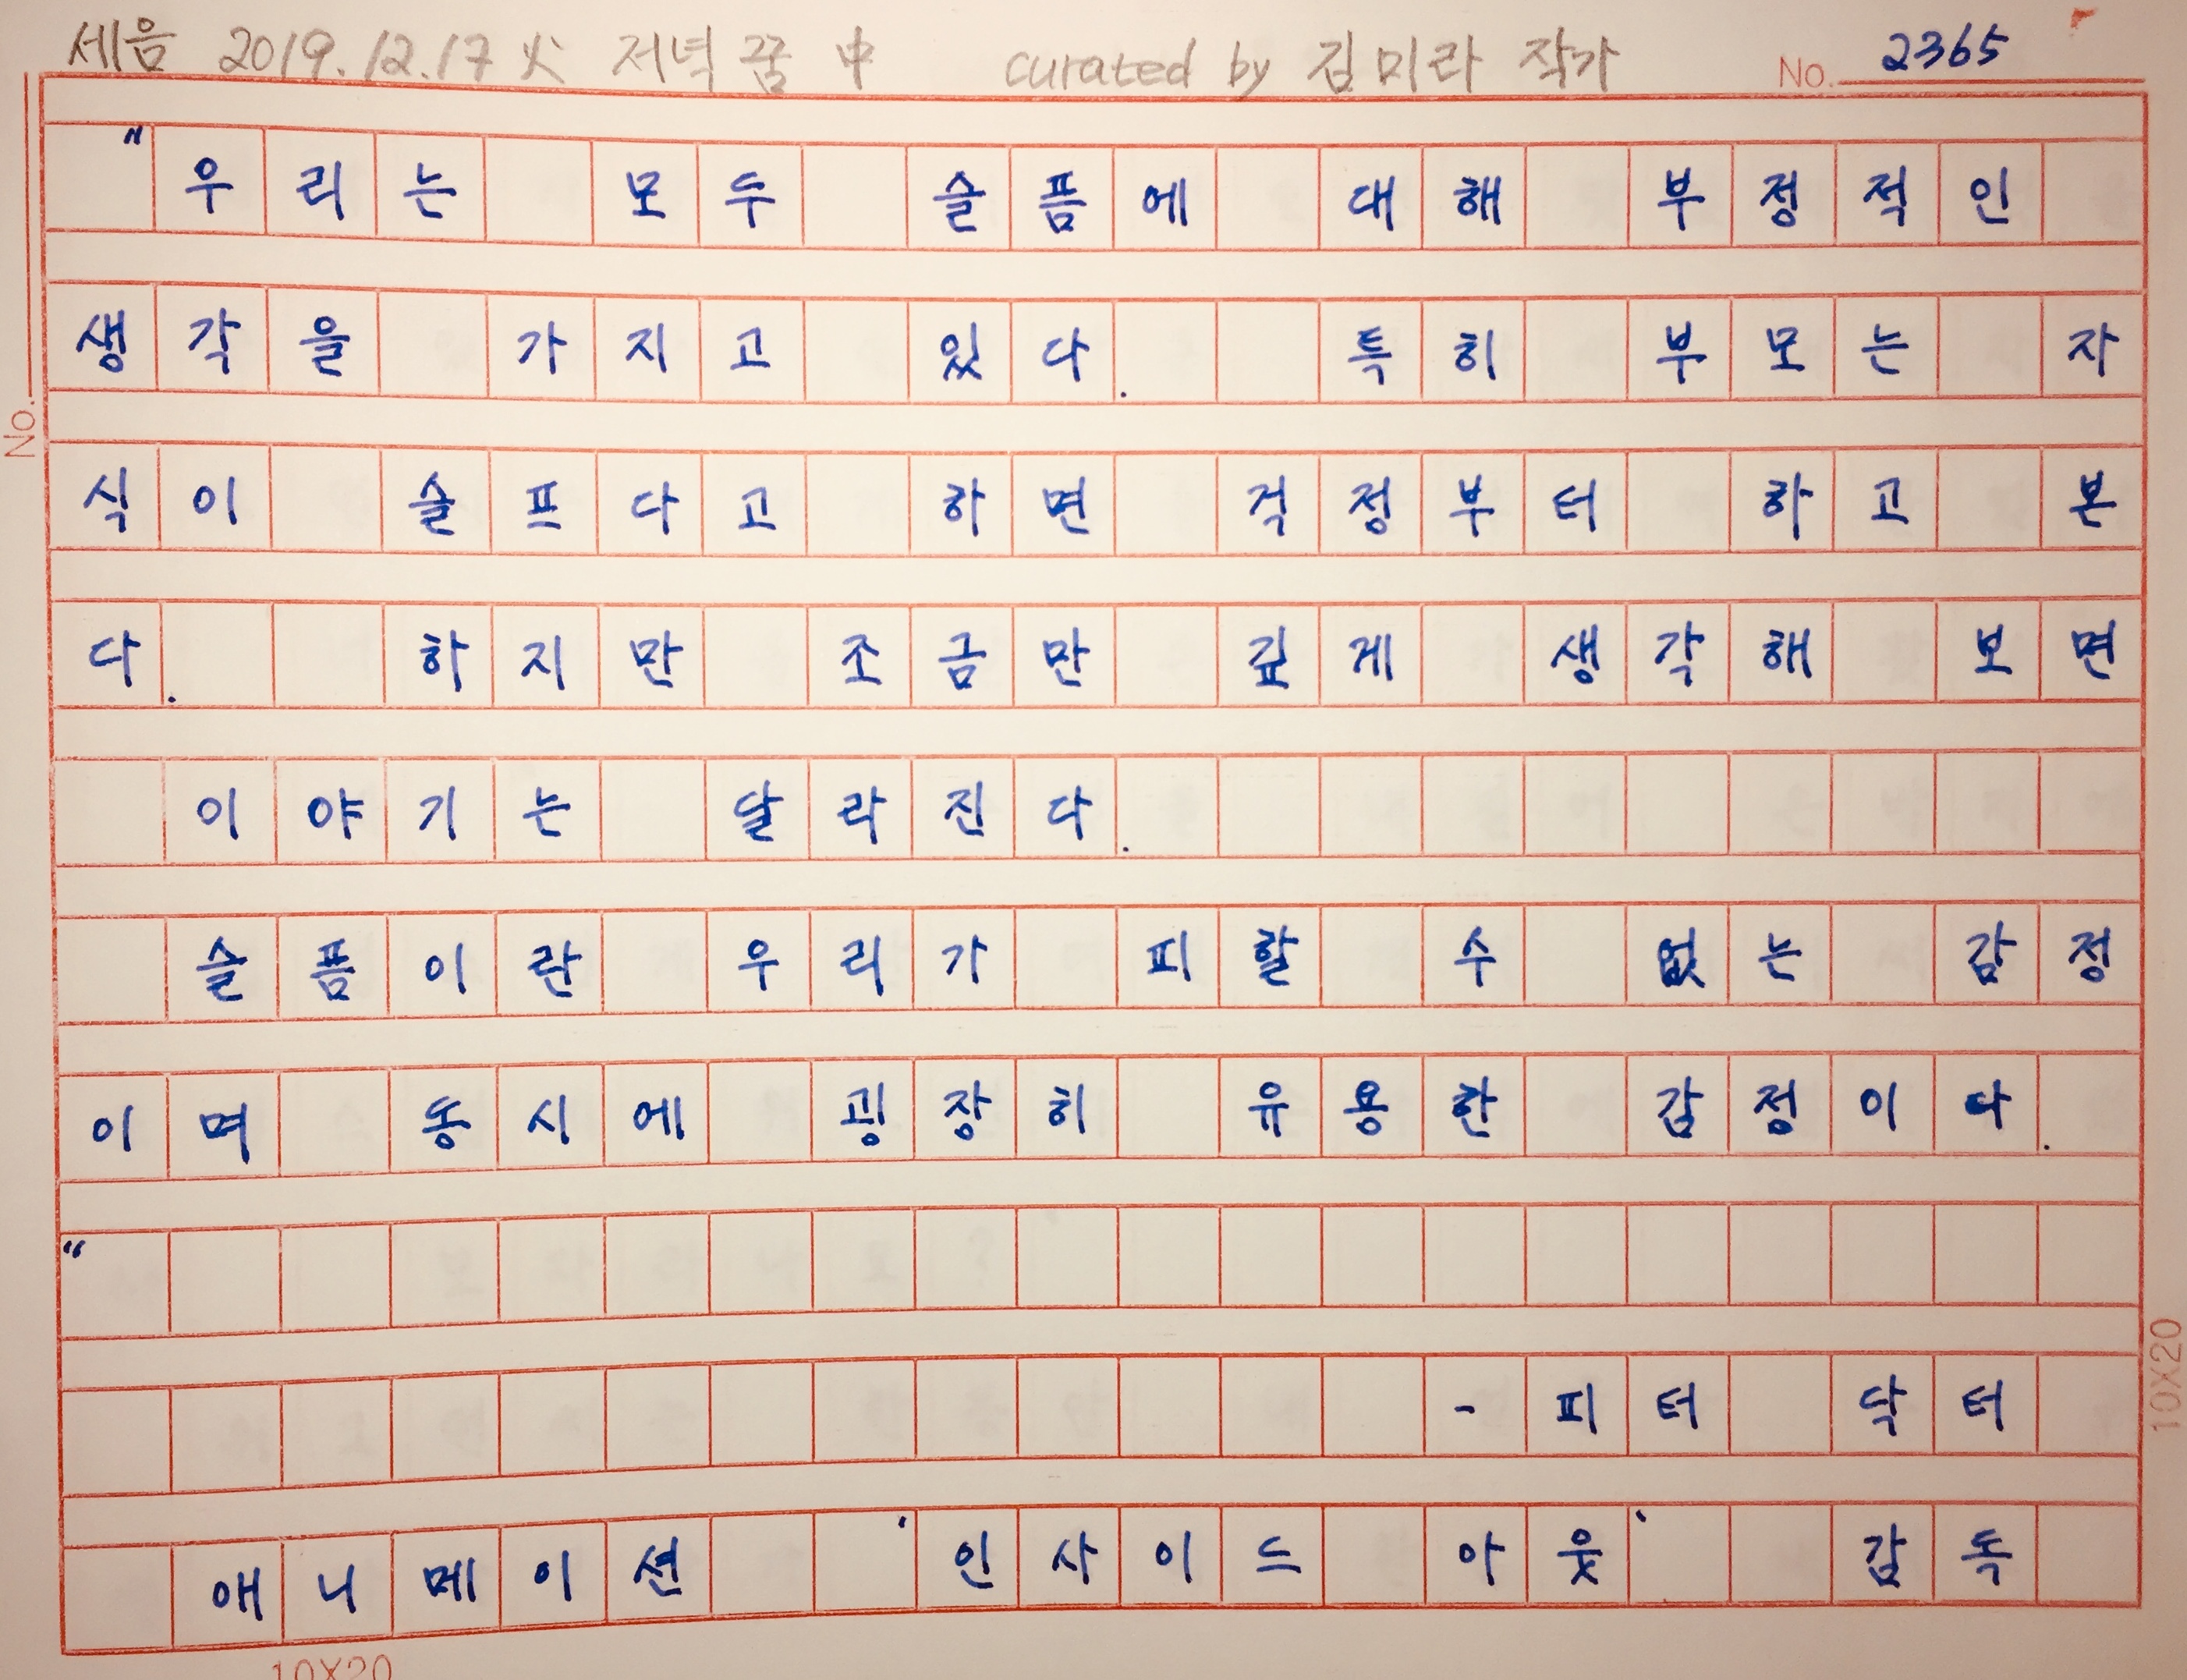 세음 2019.12.17 火 저녁 꿈 中 curated by 김미라 작가 No. 2365
"우리는 모두 슬픔에 대해 부정적인
생각을 가지고 있다. 특히 부모는 자
식이 슬프다고 하면 걱정부터 하고 본
다. 하지만 조금만 깊게 생각해 보면
이야기는 달라진다.
슬픔이란 우리가 피할 수 없는 감정
이며 동시에 굉장히 유용한 감정이다.
"
- 피터 닥터
애니메이션 '인사이드 아웃' 감독
No.
10X20
10X20